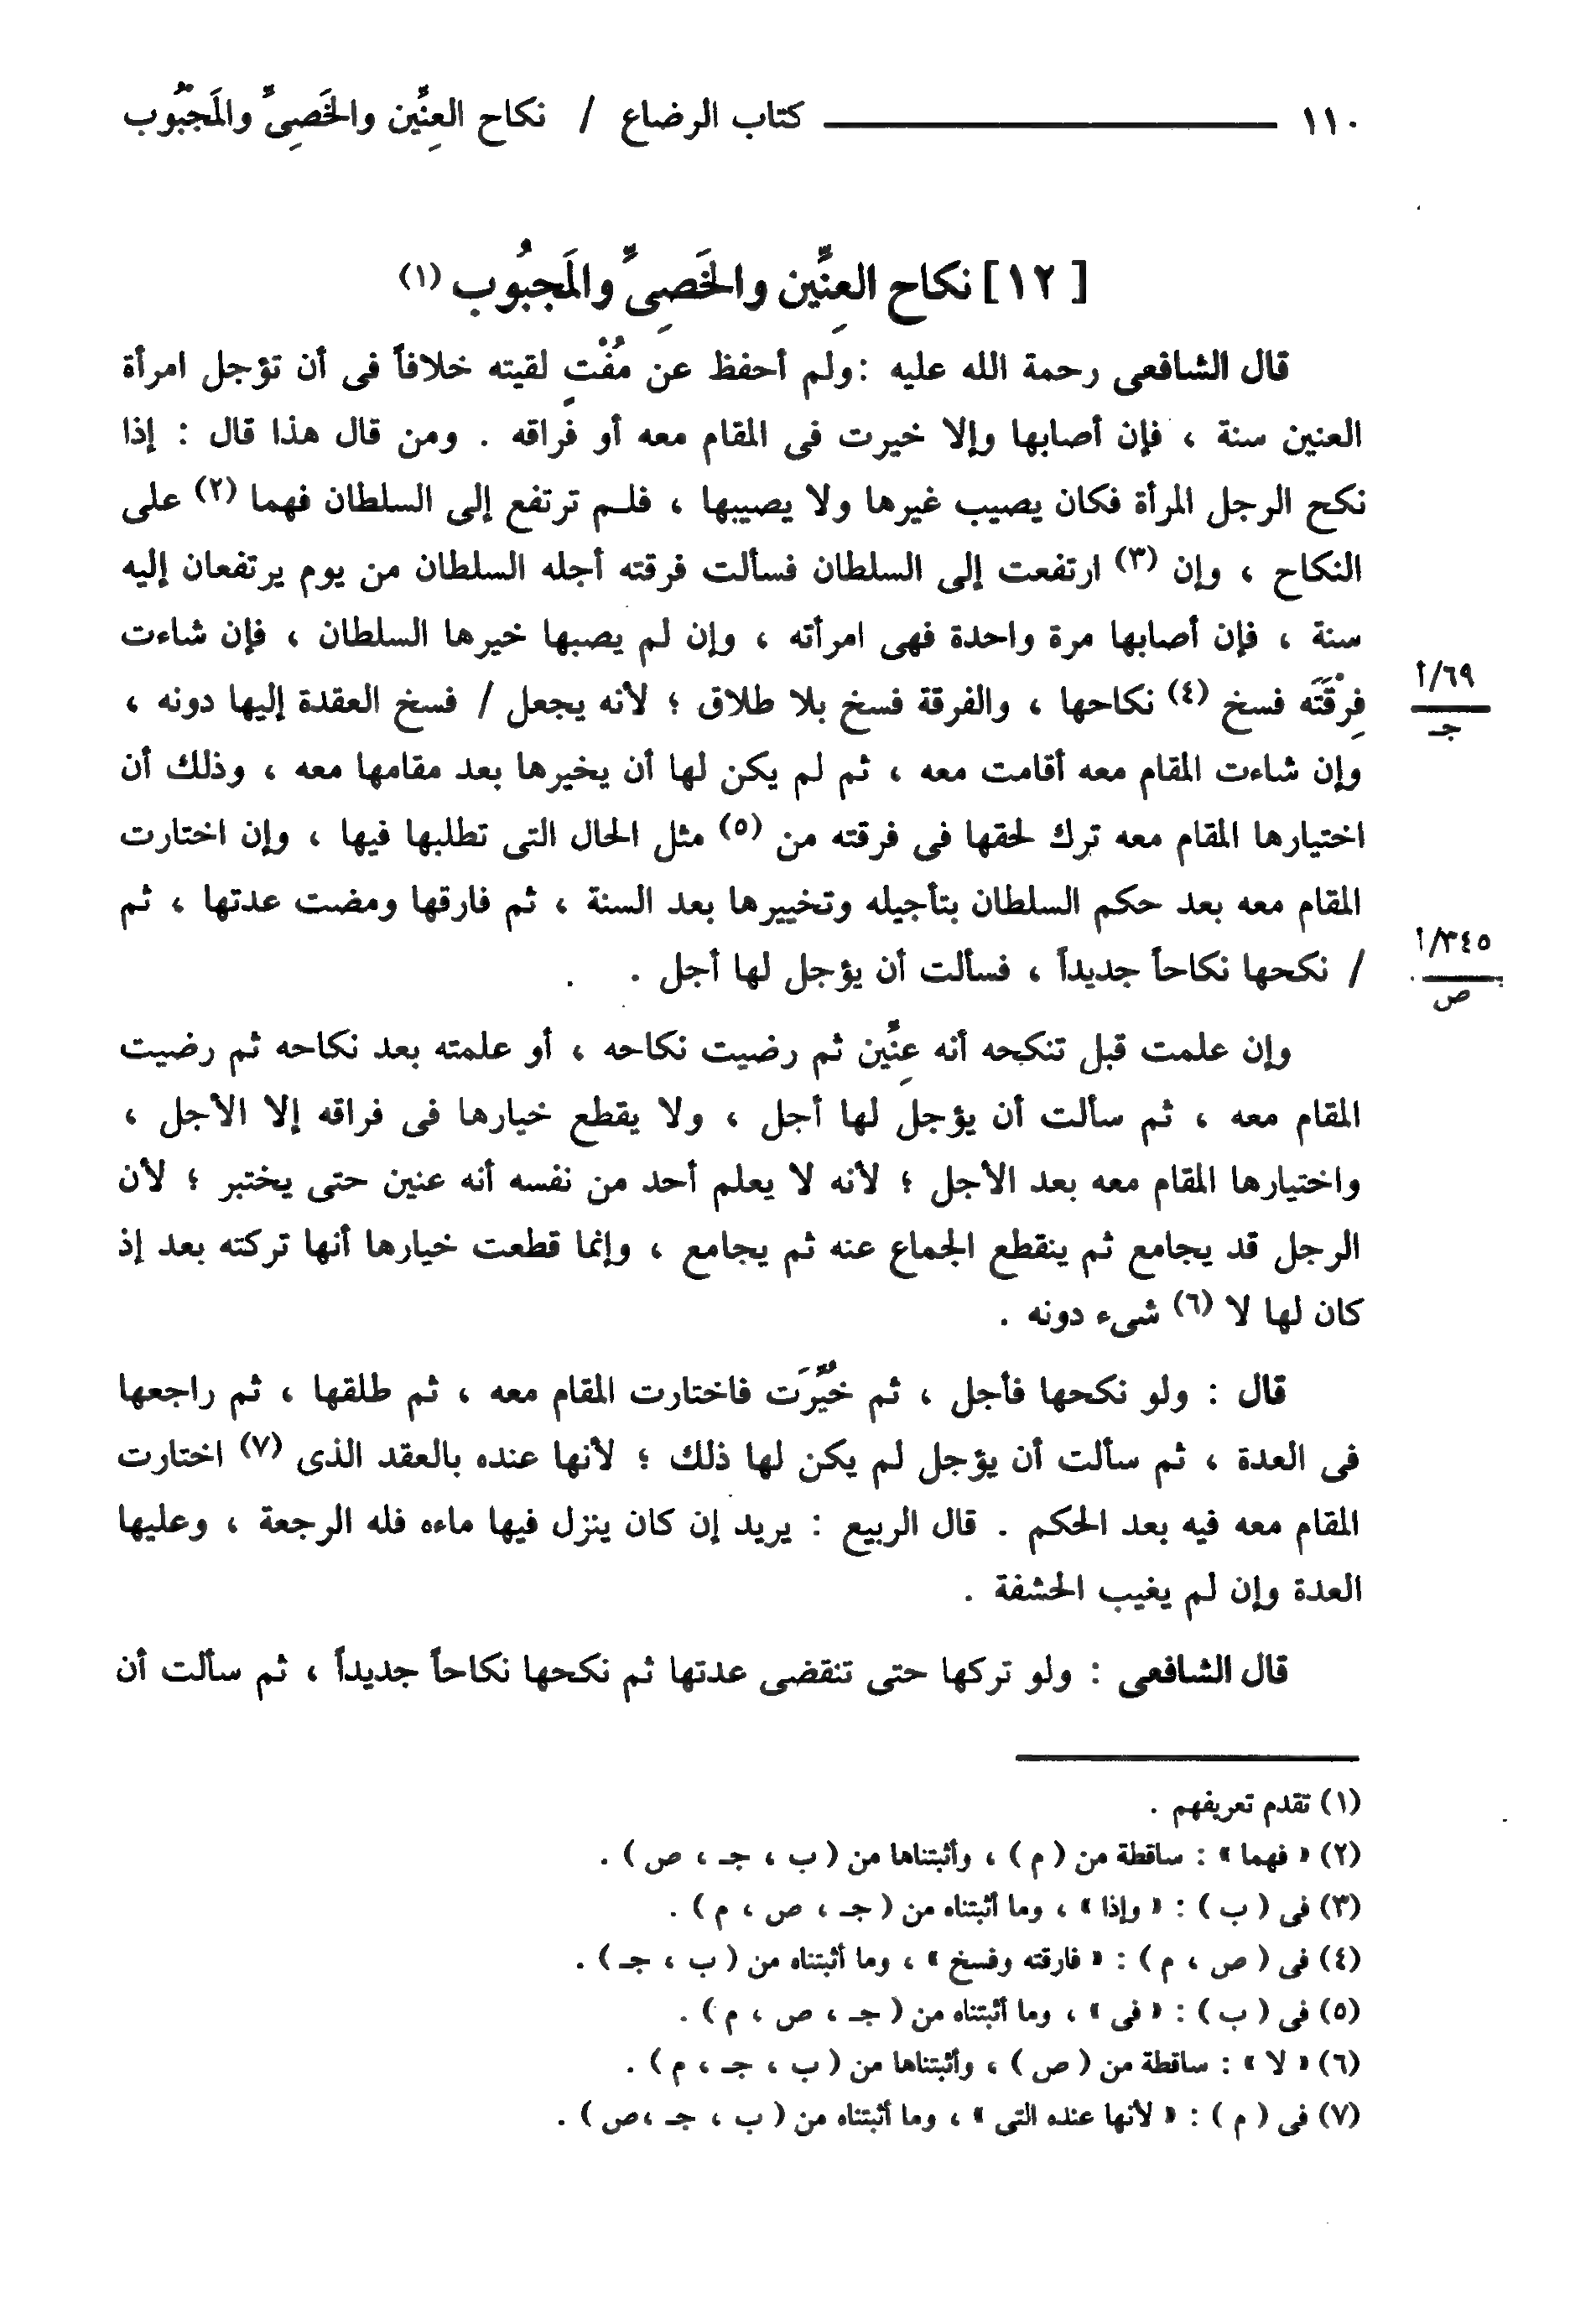 ١١٠ كتاب الرضاع / نكاح العِنِّين والخَصِىِّ والمَجْبُوب
[ ١٢ ] نكاح العِنِّين والخَصِىِّ والمَجبُوب (١)
قال الشافعى رحمة الله عليه : ولم أحفظ عن مُفْتٍ لقيته خلافاً فى أن تؤجل امرأة
العنين سنة ، فإن أصابها وإلا خيرت فى المقام معه أو فراقه . ومن قال هذا قال : إذا
نكح الرجل المرأة فكان يصيب غيرها ولا يصيبها ، فلـم ترتفع إلى السلطان فهما (٢) على
النكاح ، وإن (٣) ارتفعت إلى السلطان فسألت فرقته أجله السلطان من يوم يرتفعان إليه
سنة ، فإن أصابها مرة واحدة فهى امرأته ، وإن لم يصبها خيرها السلطان ، فإن شاءت
فِرْقَتَه فسخ (٤) نكاحها ، والفرقة فسخ بلا طلاق ؛ لأنه يجعل / فسخ العقدة إليها دونه ،
٦٩/أ
جـ
وإن شاءت المقام معه أقامت معه ، ثم لم يكن لها أن يخيرها بعد مقامها معه ، وذلك أن
اختيارها المقام معه ترك لحقها فى فرقته من (٥) مثل الحال التى تطلبها فيها ، وإن اختارت
المقام معه بعد حكم السلطان بتأجيله وتخييرها بعد السنة ، ثم فارقها ومضت عدتها ، ثم
/ نكحها نكاحاً جديداً ، فسألت أن يؤجل لها أجل .
٣٤٥/أ
ص
وإن علمت قبل تنكحه أنه عِنِّين ثم رضيت نكاحه ، أو علمته بعد نكاحه ثم رضيت
المقام معه ، ثم سألت أن يؤجل لها أجل ، ولا يقطع خيارها فى فراقه إلا الأجل ،
واختيارها المقام معه بعد الأجل ؛ لأنه لا يعلم أحد من نفسه أنه عنين حتى يختبر ؛ لأن
الرجل قد يجامع ثم ينقطع الجماع عنه ثم يجامع ، وإنما قطعت خيارها أنها تركته بعد إذ
كان لها لا (٦) شىء دونه .
قال : ولو نكحها فأجل ، ثم خُيِّرَت فاختارت المقام معه ، ثم طلقها ، ثم راجعها
فى العدة ، ثم سألت أن يؤجل لم يكن لها ذلك ؛ لأنها عنده بالعقد الذى (٧) اختارت
المقام معه فيه بعد الحكم . قال الربيع : يريد إن كان ينزل فيها ماءه فله الرجعة ، وعليها
العدة وإن لم يغيب الحشفة .
قال الشافعى : ولو تركها حتى تنقضى عدتها ثم نكحها نكاحاً جديداً ، ثم سألت أن
(١) تقدم تعريفهم .
(٢) « فهما » : ساقطة من ( م ) ، وأثبتناها من ( ب ، جـ ، ص ) .
(٣) فى ( ب ) : « وإذا » ، وما أثبتناه من ( جـ ، ص ، م ) .
(٤) فى ( ص ، م ) : « فارقته وفسخ » ، وما أثبتناه من ( ب ، جـ ) .
(٥) فى ( ب ) : « فى » ، وما أثبتناه من ( جـ ، ص ، م ) .
(٦) « لا » : ساقطة من ( ص ) ، وأثبتناها من ( ب ، جـ ، م ) .
(٧) فى ( م ) : « لأنها عنده التى » ، وما أثبتناه من ( ب ، جـ ،ص ) .